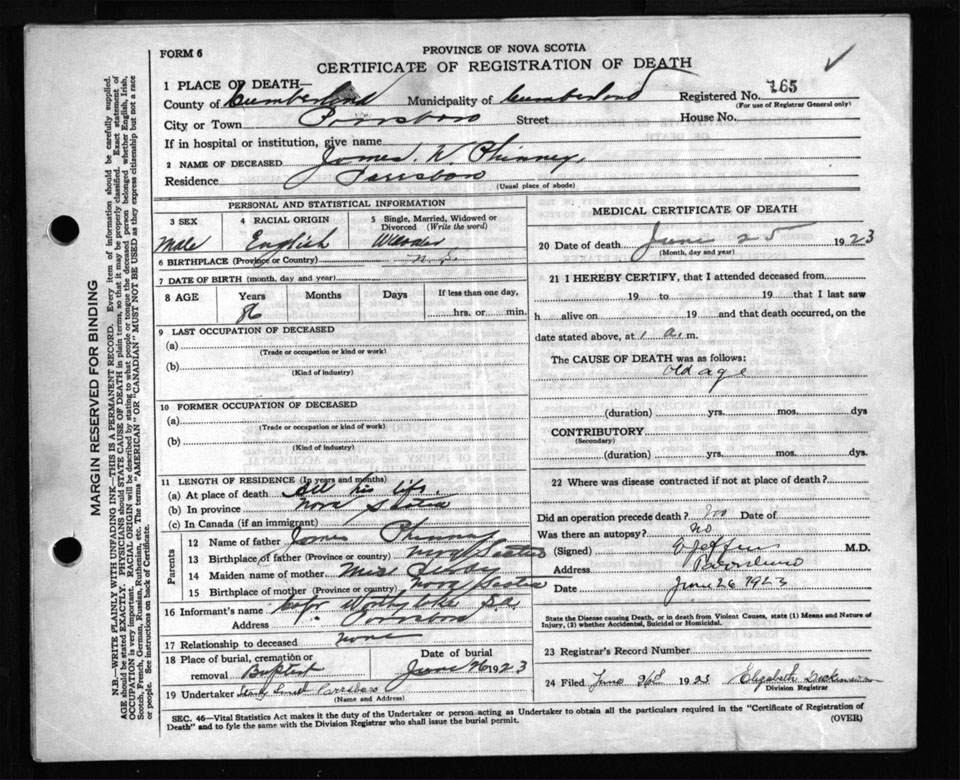 FORM 6
PROVINCE OF NOVA SCOTIA
CERTIFICATE OF REGISTRATION OF DEATH
1 PLACE OF DEATH—
County of Cumberland Municipality of Cumberland Registered No. 165
(For use of Registrar General only)
City or Town Parrsboro Street House No.
If in hospital or institution, give name
2 NAME OF DECEASED James W. Phinney
Residence Parrsboro
(Usual place of abode)
PERSONAL AND STATISTICAL INFORMATION
3 SEX 4 RACIAL ORIGIN 5 Single, Married, Widowed or Divorced (Write the word)
Male English
6 BIRTHPLACE (Province or Country) N.S.
7 DATE OF BIRTH (month, day and year)
8 AGE Years Months Days If less than one day,
86 hrs. or min.
9 LAST OCCUPATION OF DECEASED
(a)
(Trade or occupation or kind or work)
(b)
(Kind of industry)
10 FORMER OCCUPATION OF DECEASED
(a)
(Trade or occupation or kind of work)
(b)
(Kind of industry)
11 LENGTH OF RESIDENCE (In years and months)
(a) At place of death All his life
(b) In province Nova Scotia
(c) In Canada (if an immigrant)
Parents
12 Name of father James Phinney
13 Birthplace of father (Province or country) Nova Scotia
14 Maiden name of mother Miss
15 Birthplace of mother (Province or country) Nova Scotia
16 Informant's name
Address Parrsboro
17 Relationship to deceased none
18 Place of burial, cremation or removal Baptist Date of burial June 26 1923
19 Undertaker Parrsboro
(Name and Address)
MEDICAL CERTIFICATE OF DEATH
20 Date of death June 25 1923
(Month, day and year)
21 I HEREBY CERTIFY, that I attended deceased from
19 to 19 that I last saw
h alive on 19 and that death occurred, on the
date stated above, at 1 a.m.
The CAUSE OF DEATH was as follows:
old age
(duration) yrs. mos. dys
CONTRIBUTORY
(Secondary)
(duration) yrs. mos. dys.
22 Where was disease contracted if not at place of death?
Did an operation precede death? no Date of
Was there an autopsy? no
(Signed) M.D.
Address Parrsboro
Date June 26 1923
State the Disease causing Death, or in death from Violent Causes, state (1) Means and Nature of
Injury, (2) whether Accidental, Suicidal or Homicidal.
23 Registrar's Record Number
24 Filed June 26 1923 Elizabeth
Division Registrar
SEC. 46—Vital Statistics Act makes it the duty of the Undertaker or person acting as Undertaker to obtain all the particulars required in the "Certificate of Registration of
Death" and to fyle the same with the Division Registrar who shall issue the burial permit. (OVER)
MARGIN RESERVED FOR BINDING
N.B.—WRITE PLAINLY WITH UNFADING INK—THIS IS A PERMANENT RECORD. Every item of information should be carefully supplied.
AGE should be stated EXACTLY. PHYSICIANS should STATE CAUSE OF DEATH in plain terms, so that it may be properly classified. Exact statement of
OCCUPATION is very important. RACIAL ORIGIN will be described by stating to what people or tongue the deceased person belonged whether English, Irish,
Scotch, French, German, Russian, Ruthenian, etc. The terms "AMERICAN" OR "CANADIAN" MUST NOT BE USED as they express citizenship but not a race
or people. See instructions on back of Certificate.